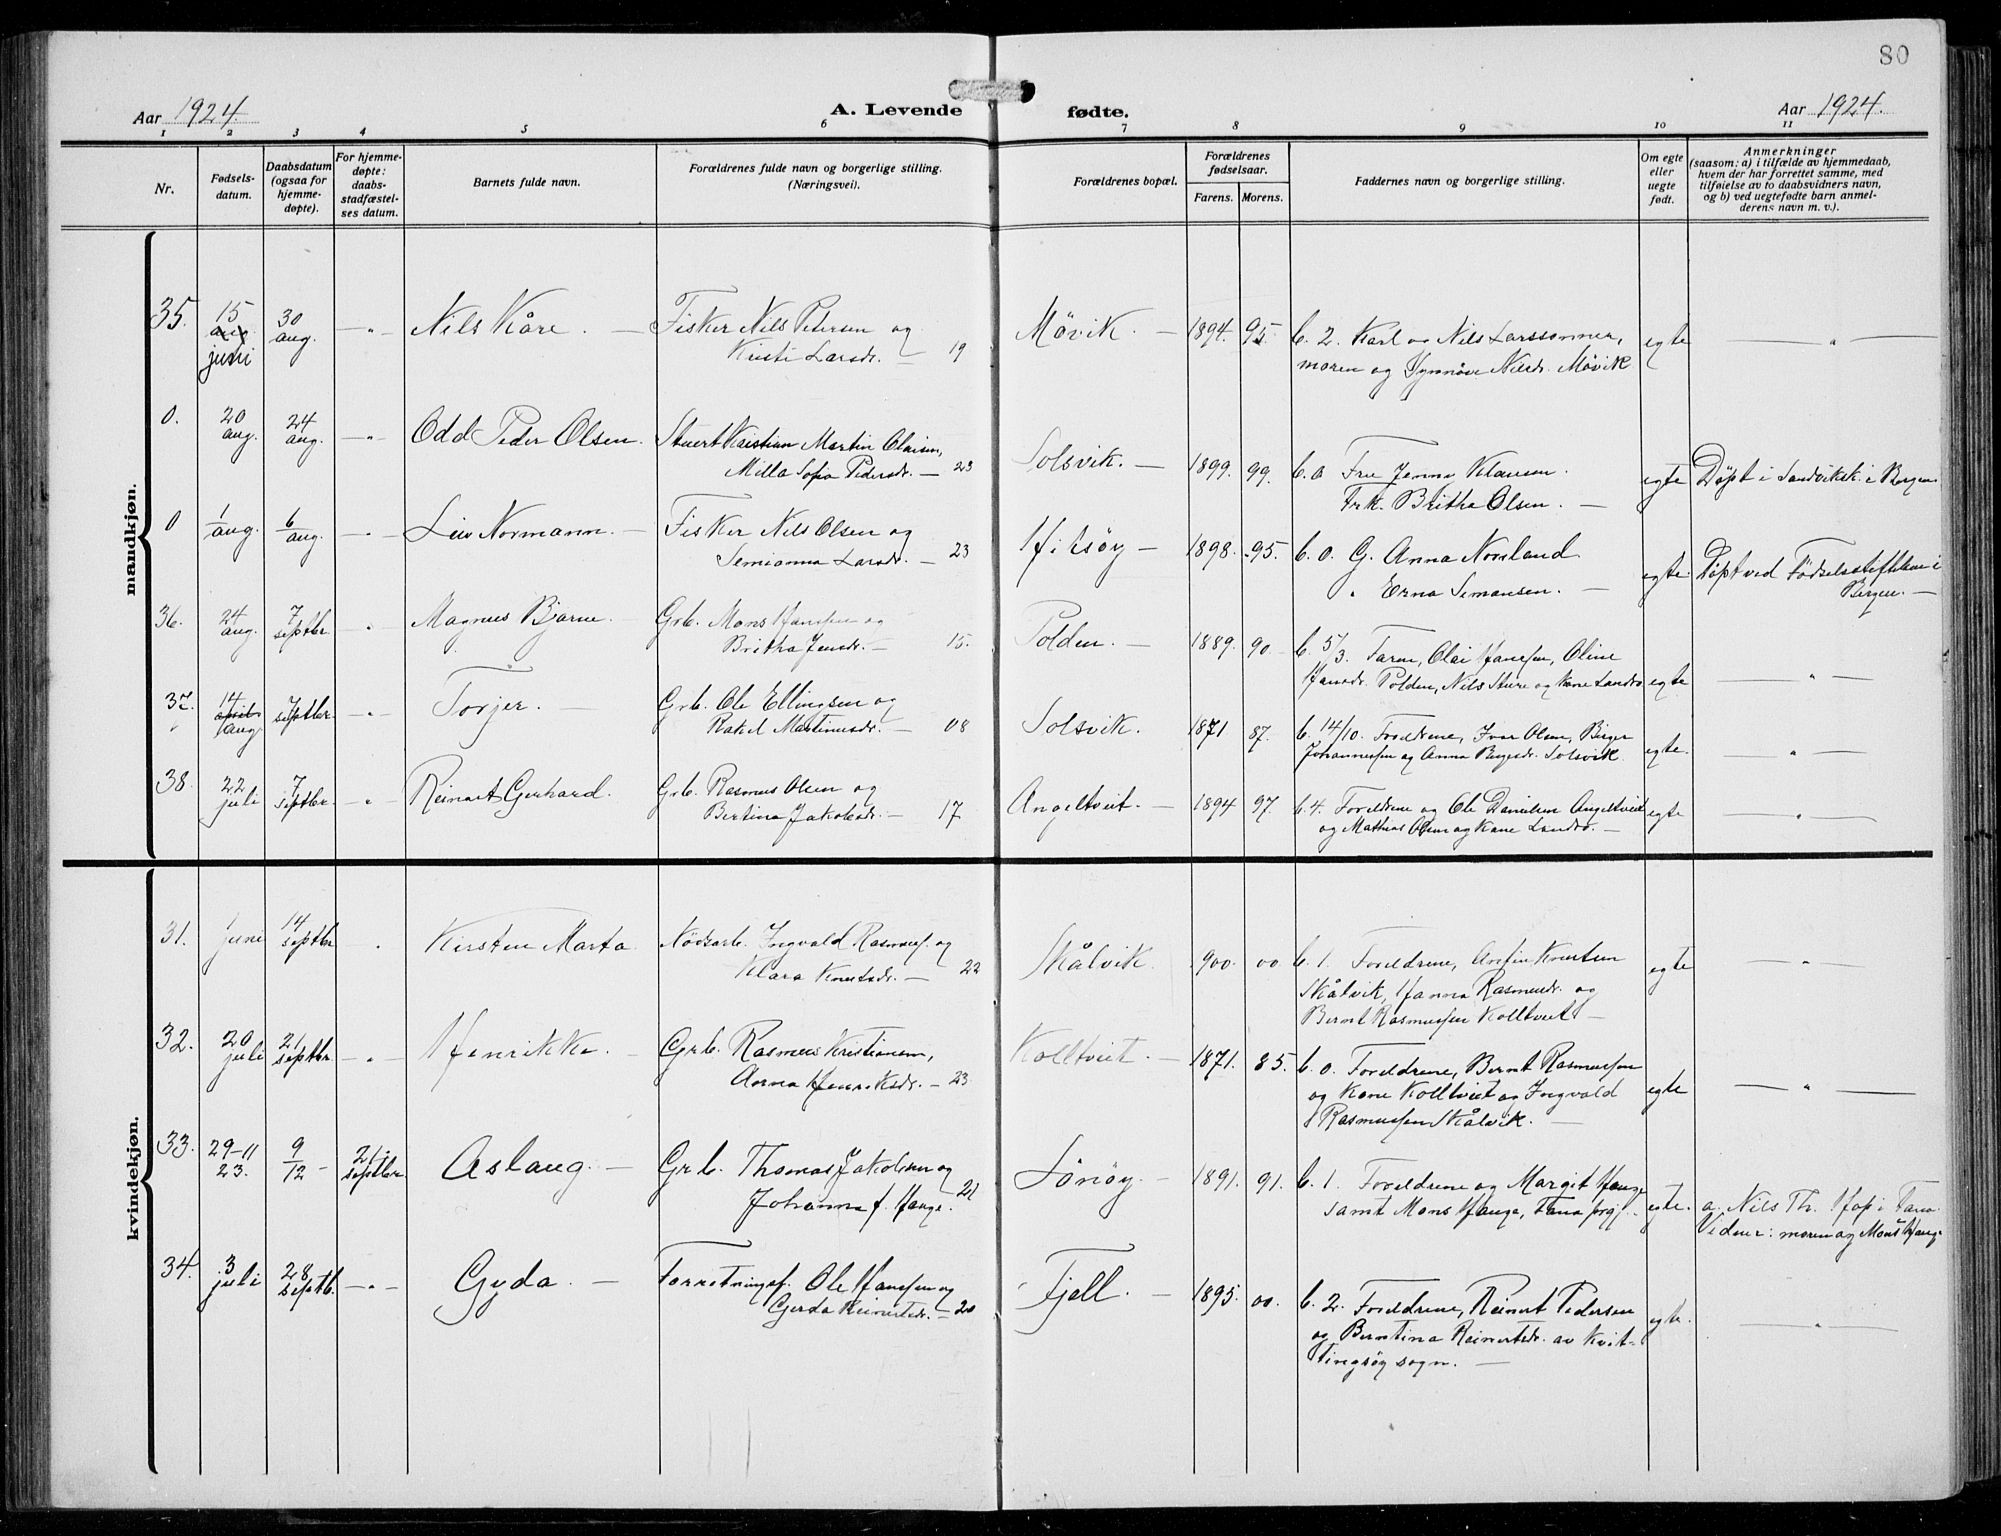 80
Aar 1924
A. Levende fødte.
Aar 1924.
1 2 3 4 5 6 7 8 9 10 11
Nr.
Fødsels-
datum.
Daabsdatum
(ogsaa for
hjemme-
døpte).
For hjemme-
døpte:
daabs-
stadfæstel-
ses datum.
Barnets fulde navn.
Forældrenes fulde navn og borgerlige stilling.
(Næringsvei).
Forældrenes bopæl.
Forældrenes
fødselsaar.
Farens. Morens.
Faddernes navn og borgerlige stilling.
Om egte
eller
uegte
født.
Anmerkninger
(saasom: a) i tilfælde av hjemmedaab,
hvem der har forrettet samme, med
tilføielse av to daabsvidners navn,
og b) ved uegtefødte barn anmel-
derens navn m. v.).
mandkjøn.
35. 15 aug. juni 30 aug. — " — Nils Kåre. — Fisker Nils Petersen og
Kirsti Larsdr. — 19 Møvik. — 1894. 95. b. 2. Karl og Nils Larssønner,
moren og Synnøve Nilsdr. Møvik egte — " —
0. 20 aug. 24 aug. — " — Odd Peder Olsen. Stuert Kristian Martin Olaisen,
Milla Sofia Pedersdr. — 23 Solsvik. — 1899. 99. b. 0 Fru Jenny Klausen.
Frk. Britha Olsen. — egte Døpt i Sandviksk. i Bergen
0 1 aug. 6 aug. — " — Leiv Normann. — Fisker Nils Olsen og
Semianna Larsdr. — 23 Hitsøy — 1898. 95. b. 0. G. Anna Nordland
" Erna Simonsen. — egte Døpt ved Fødselsstiftelsen i
Bergen. —
36. 24 aug. 7 septbr. " Magnus Bjarne. — Grb. Mons Hansen og
Britha Jensdr. — 15. Polden. — 1889. 90 b. 5/3. Faren, Olai Hansen, Oline
Hansdr. Polden, Nils Sture og kone Landro egte — " —
37. 14 april aug 7 septbr. — " — Torjer. — Grb. Ole Ellingsen og
Rakel Martinusdr. — 08 Solsvik. 1871 87. b. 14/10. Foreldrene, Ivar Olsen, Birger
Johannessen og Anna Birgersdr. Solsvik egte. — " —
38. 22 juli 7 septbr. — " Reinert Gerhard. Grb. Rasmus Olsen og
Bertina Jakobsdr. — 17 Angeltveit. — 1894 97. b. 4. Foreldrene og Ole Danielsen Angeltveit
og Mathias Olsen og kone Landro. — egte — " —
kvindekjøn.
31. 1 juni 14 septbr " Kirsten Marta Nødsarb. Ingvald Rasmuss. og
Klara Knutsdr. — 22 Skålvik. 900. 00. b. 1. Foreldrene, Arnfin Knutsen
Skålvik, Hanna Rasmusdr. og
Bernt Rasmussen Kolltveit — egte — " —
32. 20 juli 21 septbr. — " — Henrikke. — Grb. Rasmus Kristiansen,
Anna Henriksdr. — 23 Kolltveit. — 1871. 85. b. 0. Foreldrene, Bernt Rasmussen
og kone Kolltveit og Ingvald
Rasmussen Skålvik. — egte — " —
33. 29-11 23. 9/12 — 21. septbr. Aslaug. — Grb. Thomas Jakobsen og
Johanna f. Hauge. 21 Sønøy. — 1891. 91. b. 1. Foreldrene og Margit Hauge
samt Mons Hauge, Fana prgj. egte. a. Nils Th. Hop i Fana.
Vidner: moren og Mons Haug-
34. 3 juli 28 septb. — " — Gyda. — Forretningsf. Ole Hansen og
Gerda Reinertsdr. — 20 Fjell. — 1895. 00. b. 2. Foreldrene, Reinert Pedersen
og Berntina Reinertsdr. av Kvit-
tingsøy sogn. — egte. — " —